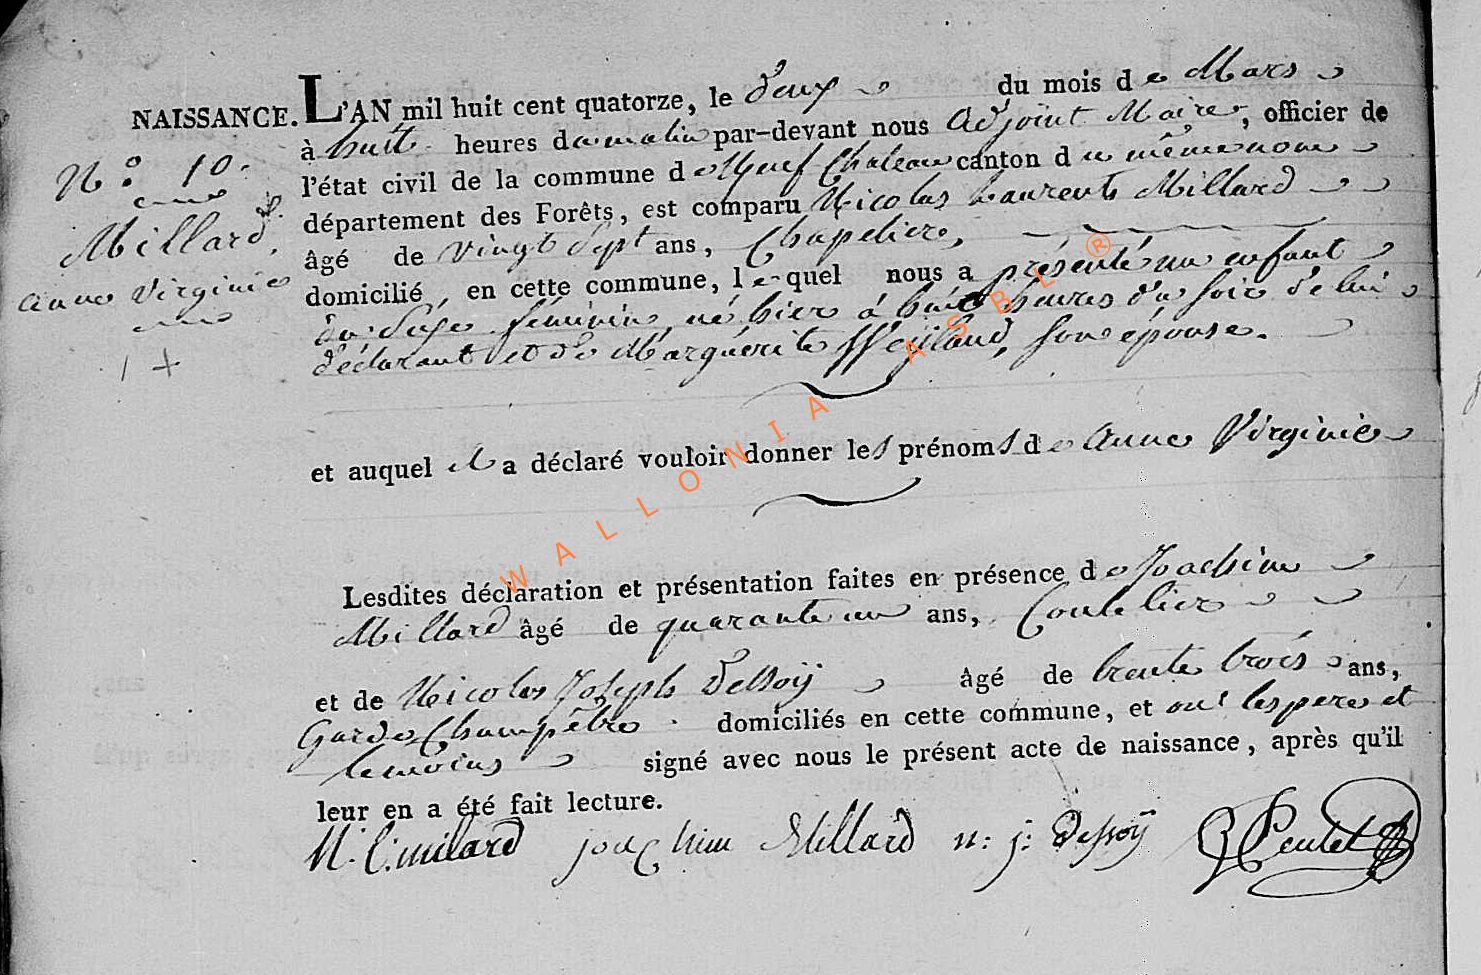 NAISSANCE.
L'AN mil huit cent quatorze, le deux du mois de Mars
à huit heures du matin par-devant nous Adjoint Maire, officier de
l'état civil de la commune de Neuf Chateau canton du même nom
département des Forêts, est comparu Nicolas Laurent Millard
âgé de vingt Sept ans, Chapelier,
domicilié, en cette commune, lequel nous a présenté un enfant
du Sexe féminin, né hier à huit heures du soir de lui
déclarant et de Marguerite Weyland, son épouse.
et auquel il a déclaré vouloir donner les prénoms de Anne Virginie
Lesdites déclaration et présentation faites en présence de Joachim
Millard âgé de quarante un ans, Coutelier
et de Nicolas Joseph Dessoÿ âgé de trente trois ans,
Garde Champêtre domiciliés en cette commune, et ont les pere et
temoins signé avec nous le présent acte de naissance, après qu'il
leur en a été fait lecture.
N. L. milard joachim Millard n: j: Dessoÿ
N.º 10.
Millard,
anne Virginie
1 +
WALLONIA ASBL ®